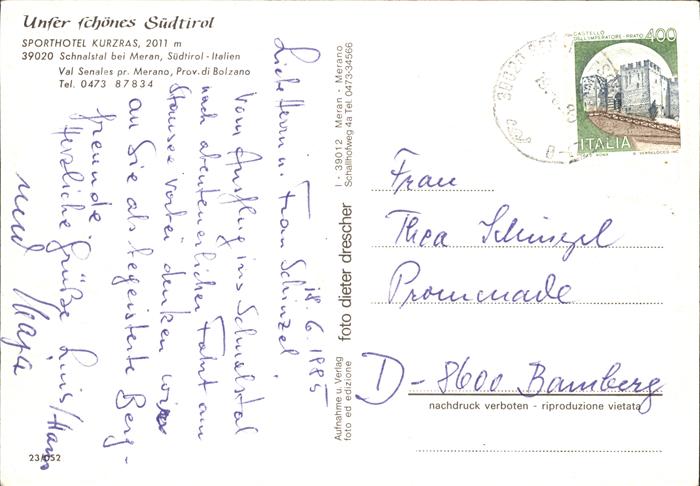 Unser schönes Südtirol
SPORTHOTEL KURZRAS, 2011 m
39020 Schnalstal bei Meran, Südtirol - Italien
Val Senales pr. Merano, Prov. di Bolzano
Tel. 0473 87834
18.6.1985
Liebe Herrn u. Frau Schinzel!
Vom Ausflug ins Schnalstal
nach abenteuerlicher Fahrt am
Stausee vorbei denken wir
an Sie als begeisterte Berg-
freunde.
Herzliche Grüße Luis/Hans
und Maya
23/052
Aufnahme u. Verlag
foto ed edizione
foto dieter drescher
I - 39012 Meran - Merano
Schallhofweg 4a Tel. 0473-34566
CASTELLO
DELL'IMPERATORE - PRATO
400
ITALIA
Frau
Thea Schinzel
Promenade
D-8600 Bamberg
nachdruck verboten - riproduzione vietata